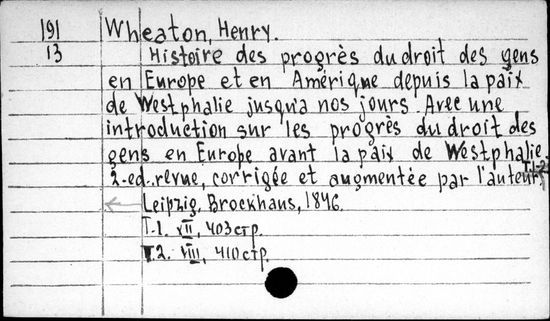 191 Wheaton, Henry.
13 Histoire des progrès du droit des gens
en Europe et en Amérique depuis la paix
de Westphalie jusqu'a nos jours. Avec une
introduction sur les progrès du droit des
gens en Europe avant la paix de Westphalie.
2-ed. revue, corrigée et augmentée par l'auteur. T.1-2
Leipzig, Brockhaus, 1846.
T.1. VII, 403 стр.
T.2. VIII, 410 стр.